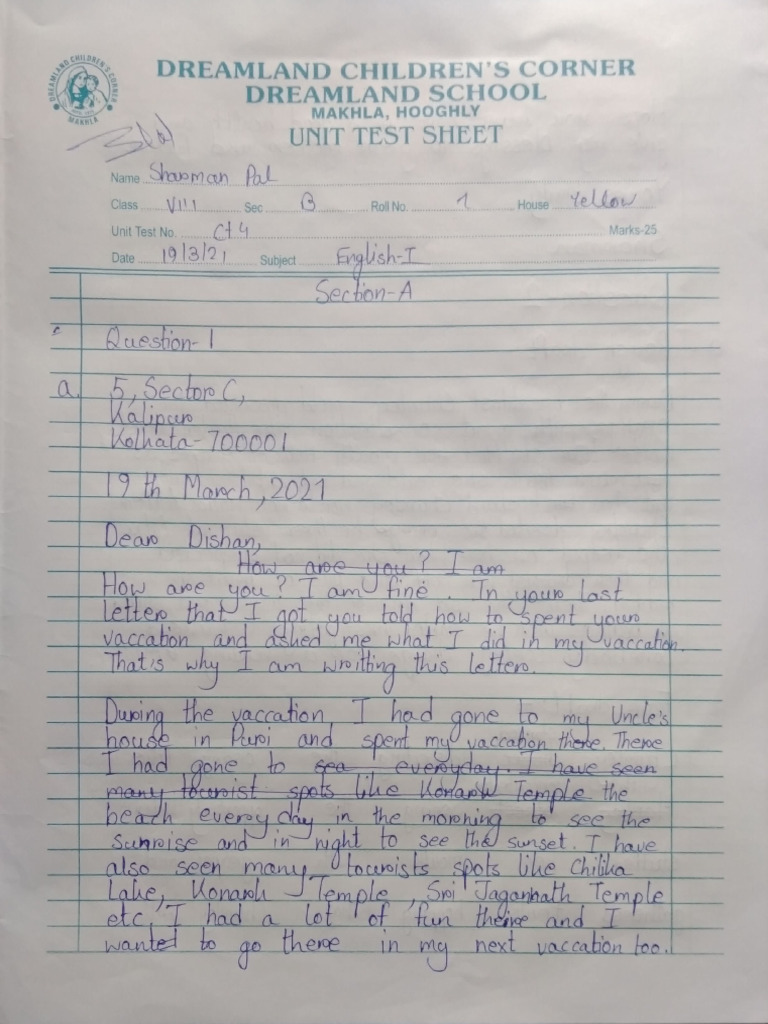 DREAMLAND CHILDREN'S CORNER
DREAMLAND SCHOOL
MAKHLA, HOOGHLY
UNIT TEST SHEET
DREAMLAND CHILDREN'S CORNER
MAKHLA
Name Sharman Pal
Class VIII Sec B Roll No. 1 House Yellow
Unit Test No. Ct 4 Marks-25
Date 19/3/21 Subject English-I
Section-A
Question-1
a. 5, Sector C,
Kalipur
Kolkata-700001
19th March, 2021
Dear Dishan,
How are you? I am
How are you? I am fine. In your last
letter that I got you told how to spent your
vaccation and asked me what I did in my vaccation.
That's why I am writting this letter.
During the vaccation, I had gone to my Uncle's
house in Puri and spent my vaccation there. There
I had gone to sea everyday. I have seen
many tourist spots like Konark Temple the
beach everyday in the morning to see the
sunrise and in night to see the sunset. I have
also seen many tourists spots like Chilika
Lake, Konark Temple, Sri Jagannath Temple
etc. I had a lot of fun there and I
wanted to go there in my next vaccation too.